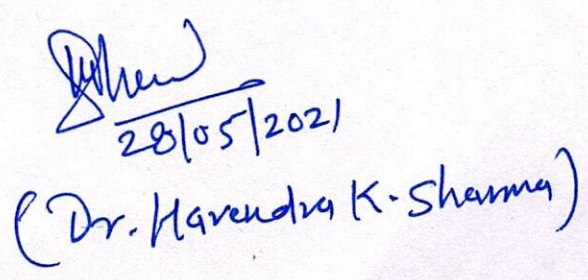 28/05/2021
(Dr. Harendra K. Sharma)